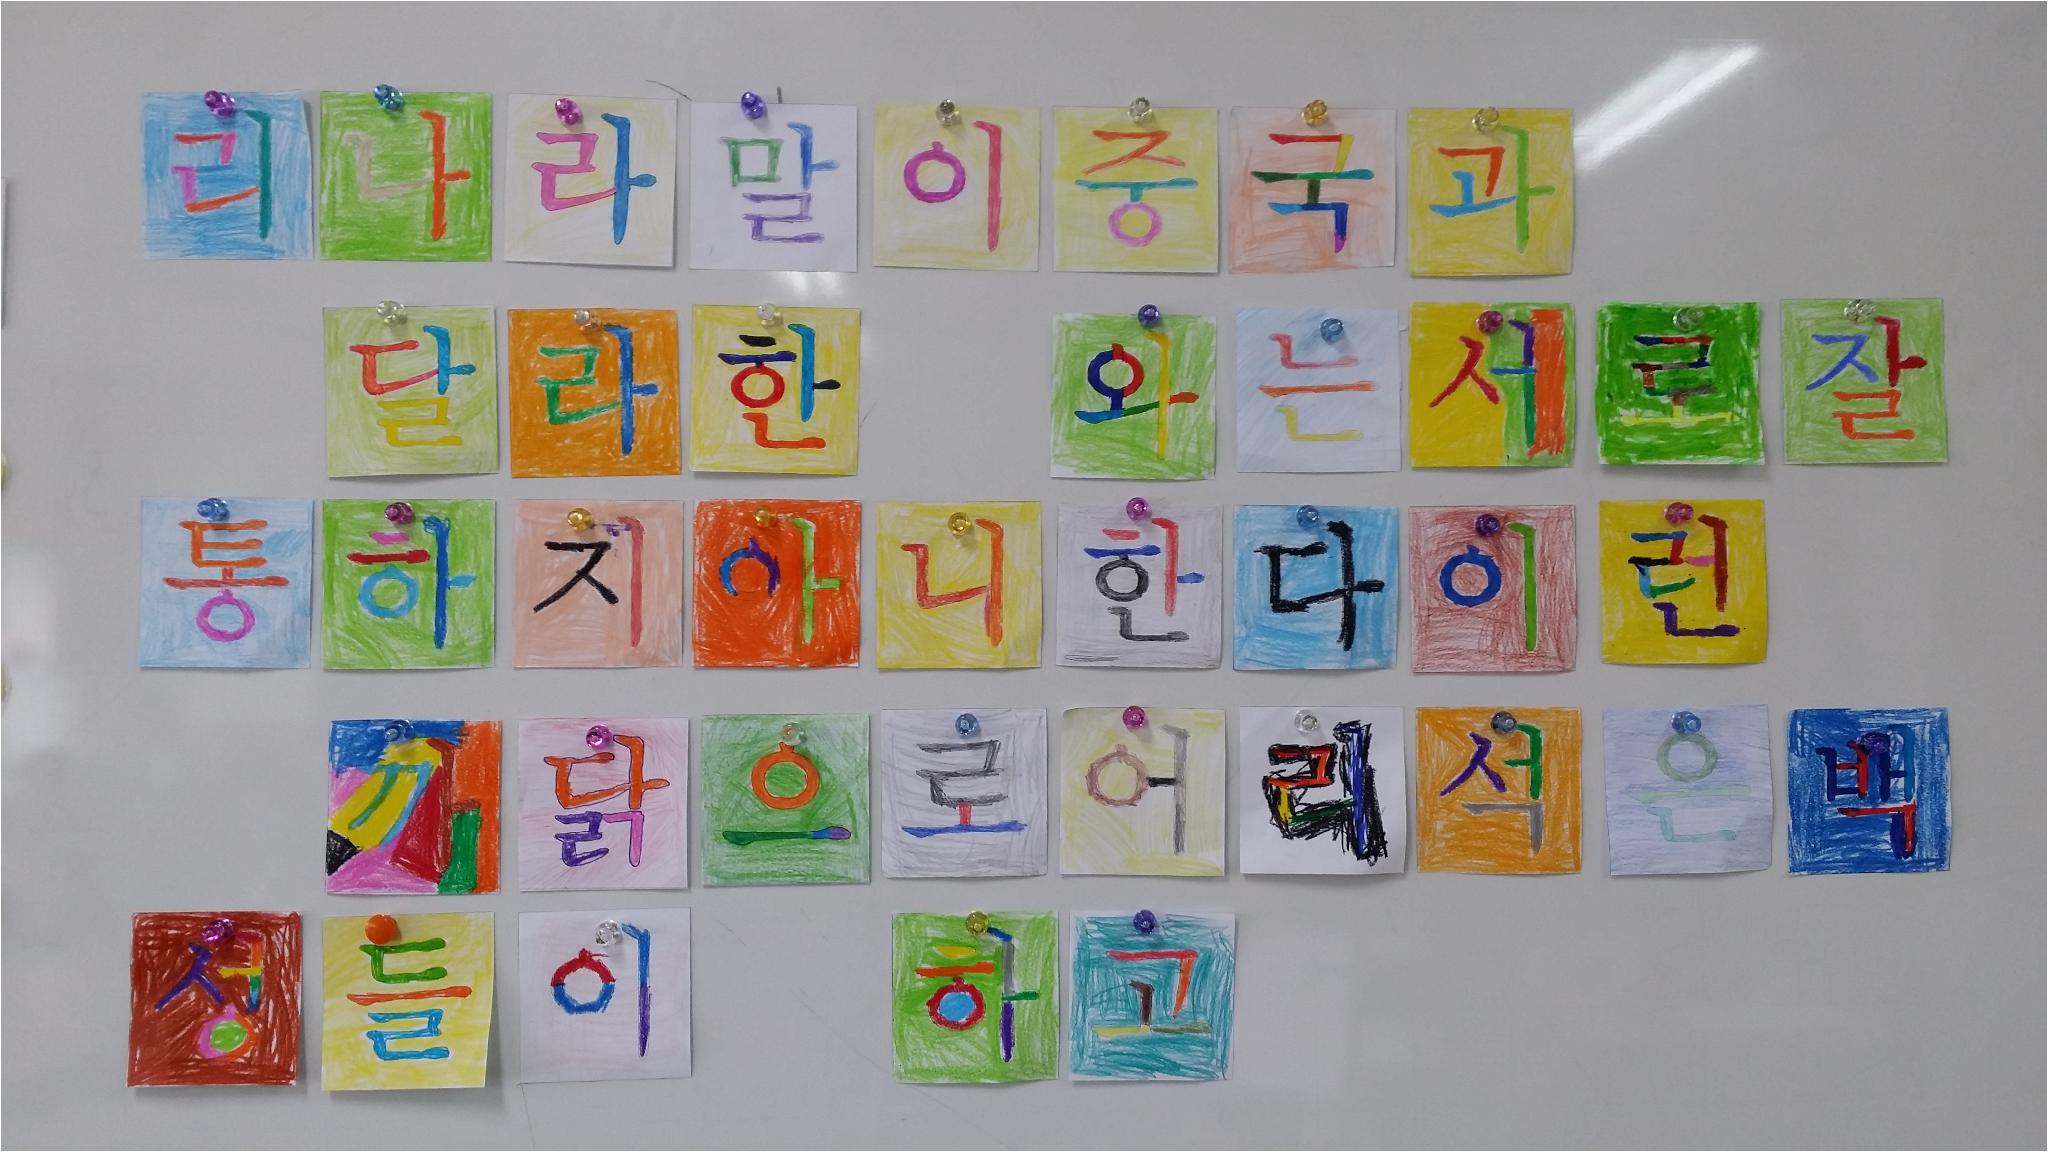 리나라말이중국과
달라한 와는서로잘
통하지아니한다이런
까닭으로어리석은백
성들이 하고